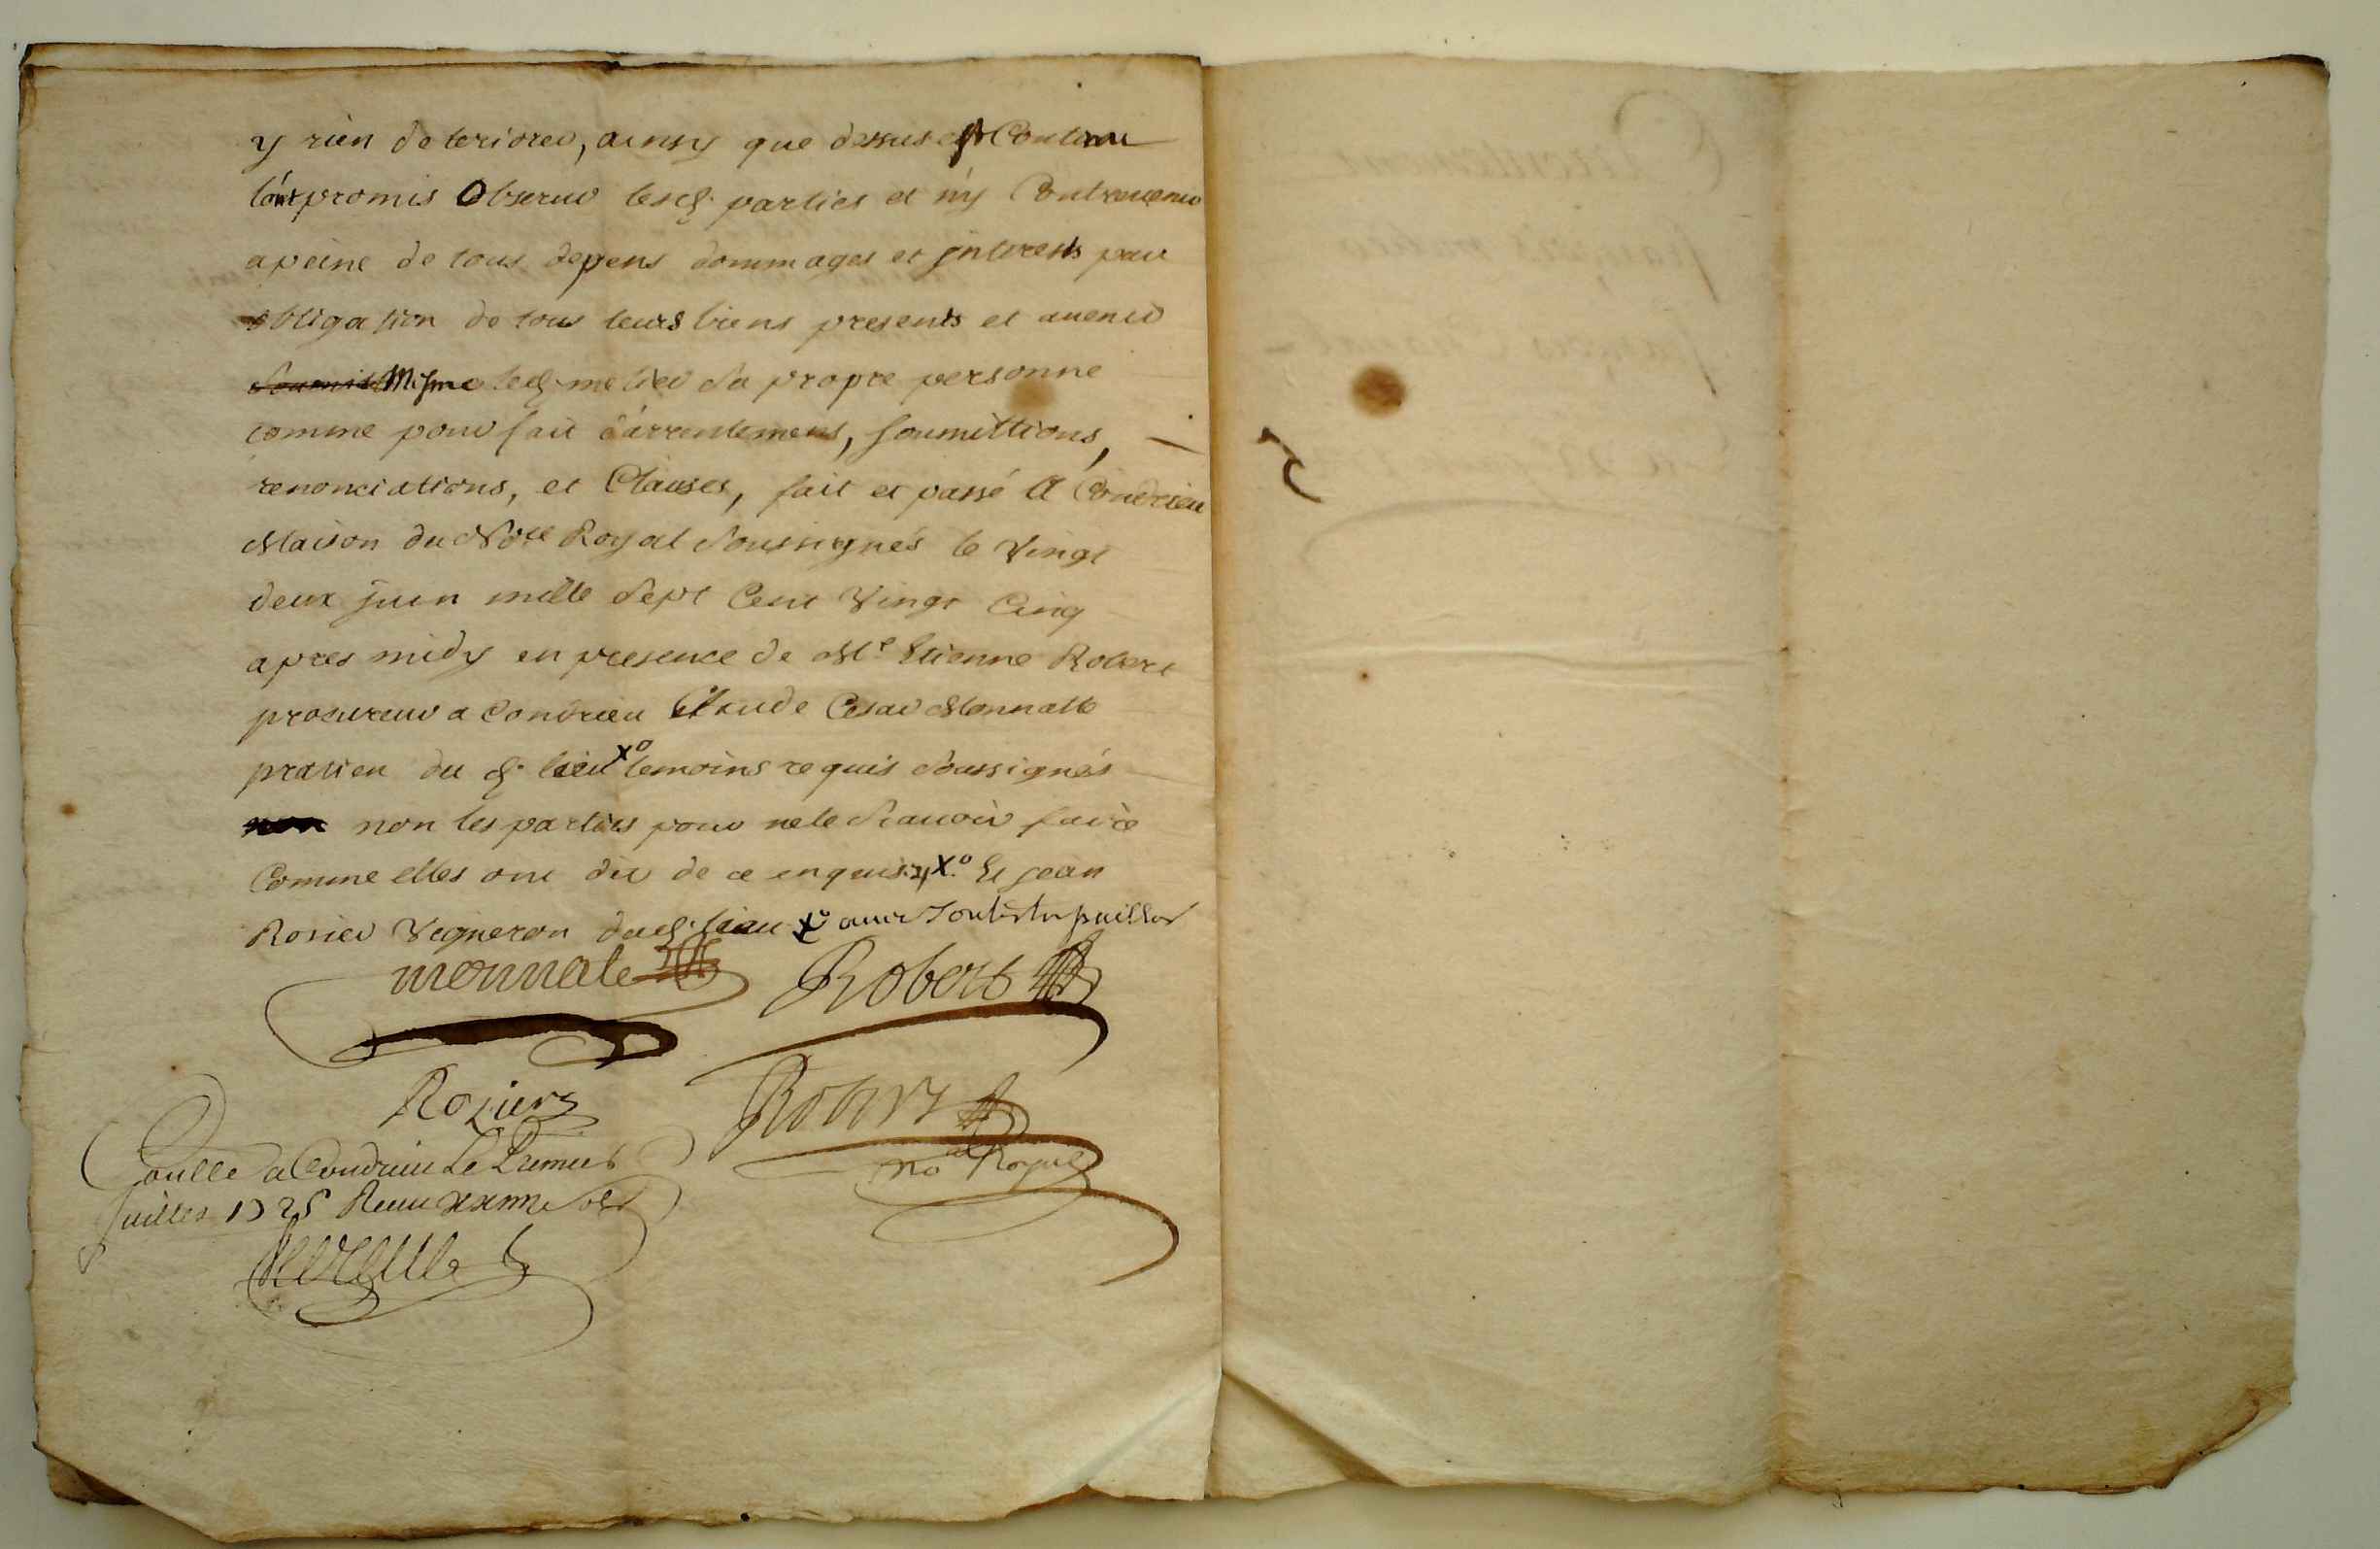 y rien deteriorer, ainsy que dessus est Contenu
l'ont promis Observer lesd. parties et n'y Contrevenir
a peine de tous depens dommages et jnterests par
obligation de tous leurs biens presents et avenir
Mesme led. metier sa propre personne
comme pour fait d'arrentement, soumittions,
renonciations, et Clauses, fait et passé A Condrieu
Maison du No.re Royal soussignés le Vingt
deux juin mille sept Cent Vingt Cinq
apres midy en presence de M.e Etienne Robert
procureur a Condrieu Claude Cesar Monnatte
pratien du d. lieu xo temoins requis soussignés
non non les parties pour ne le scavoir faire
Comme elles ont dit de ce enquis xo Et jean
Rosier Vigneron dud. lieu xo
monnate Robert
Roziers Robert
no Royal
Conllé a Condrieu Le Premier
juillet 1725 Receu sols